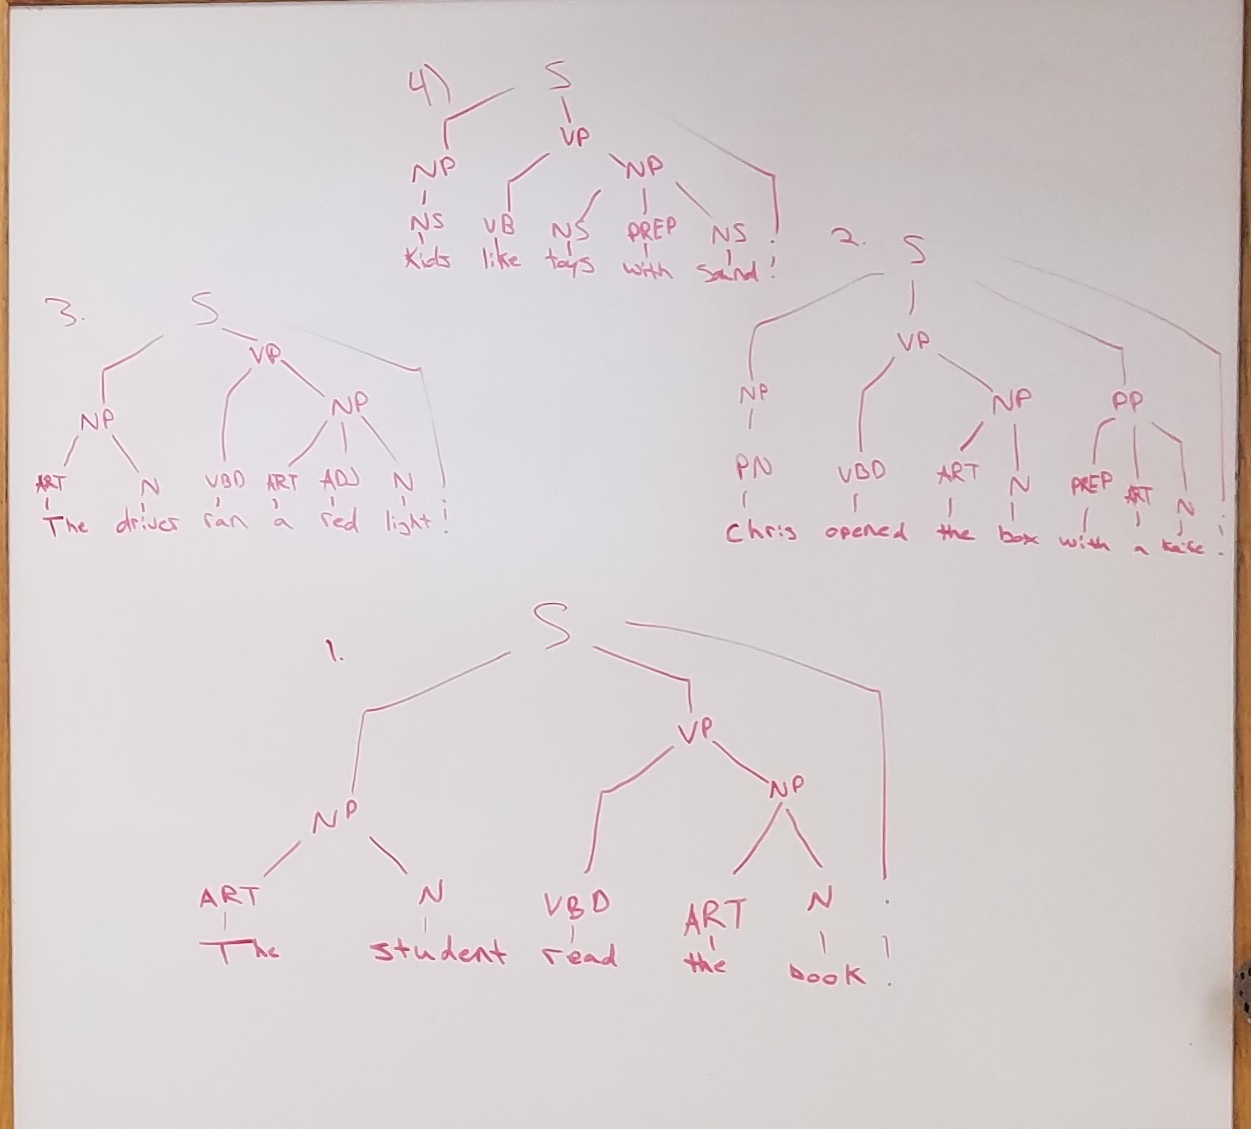 4) S
VP
NP NP
NS VB NS PREP NS .
Kids like toys with sand .
2. S
VP
NP NP PP
PN VBD ART N PREP ART N .
Chris opened the box with a knife .
3. S
VP
NP NP
ART N VBD ART ADJ N .
The driver ran a red light .
1. S
VP
NP NP
ART N VBD ART N .
The student read the book .